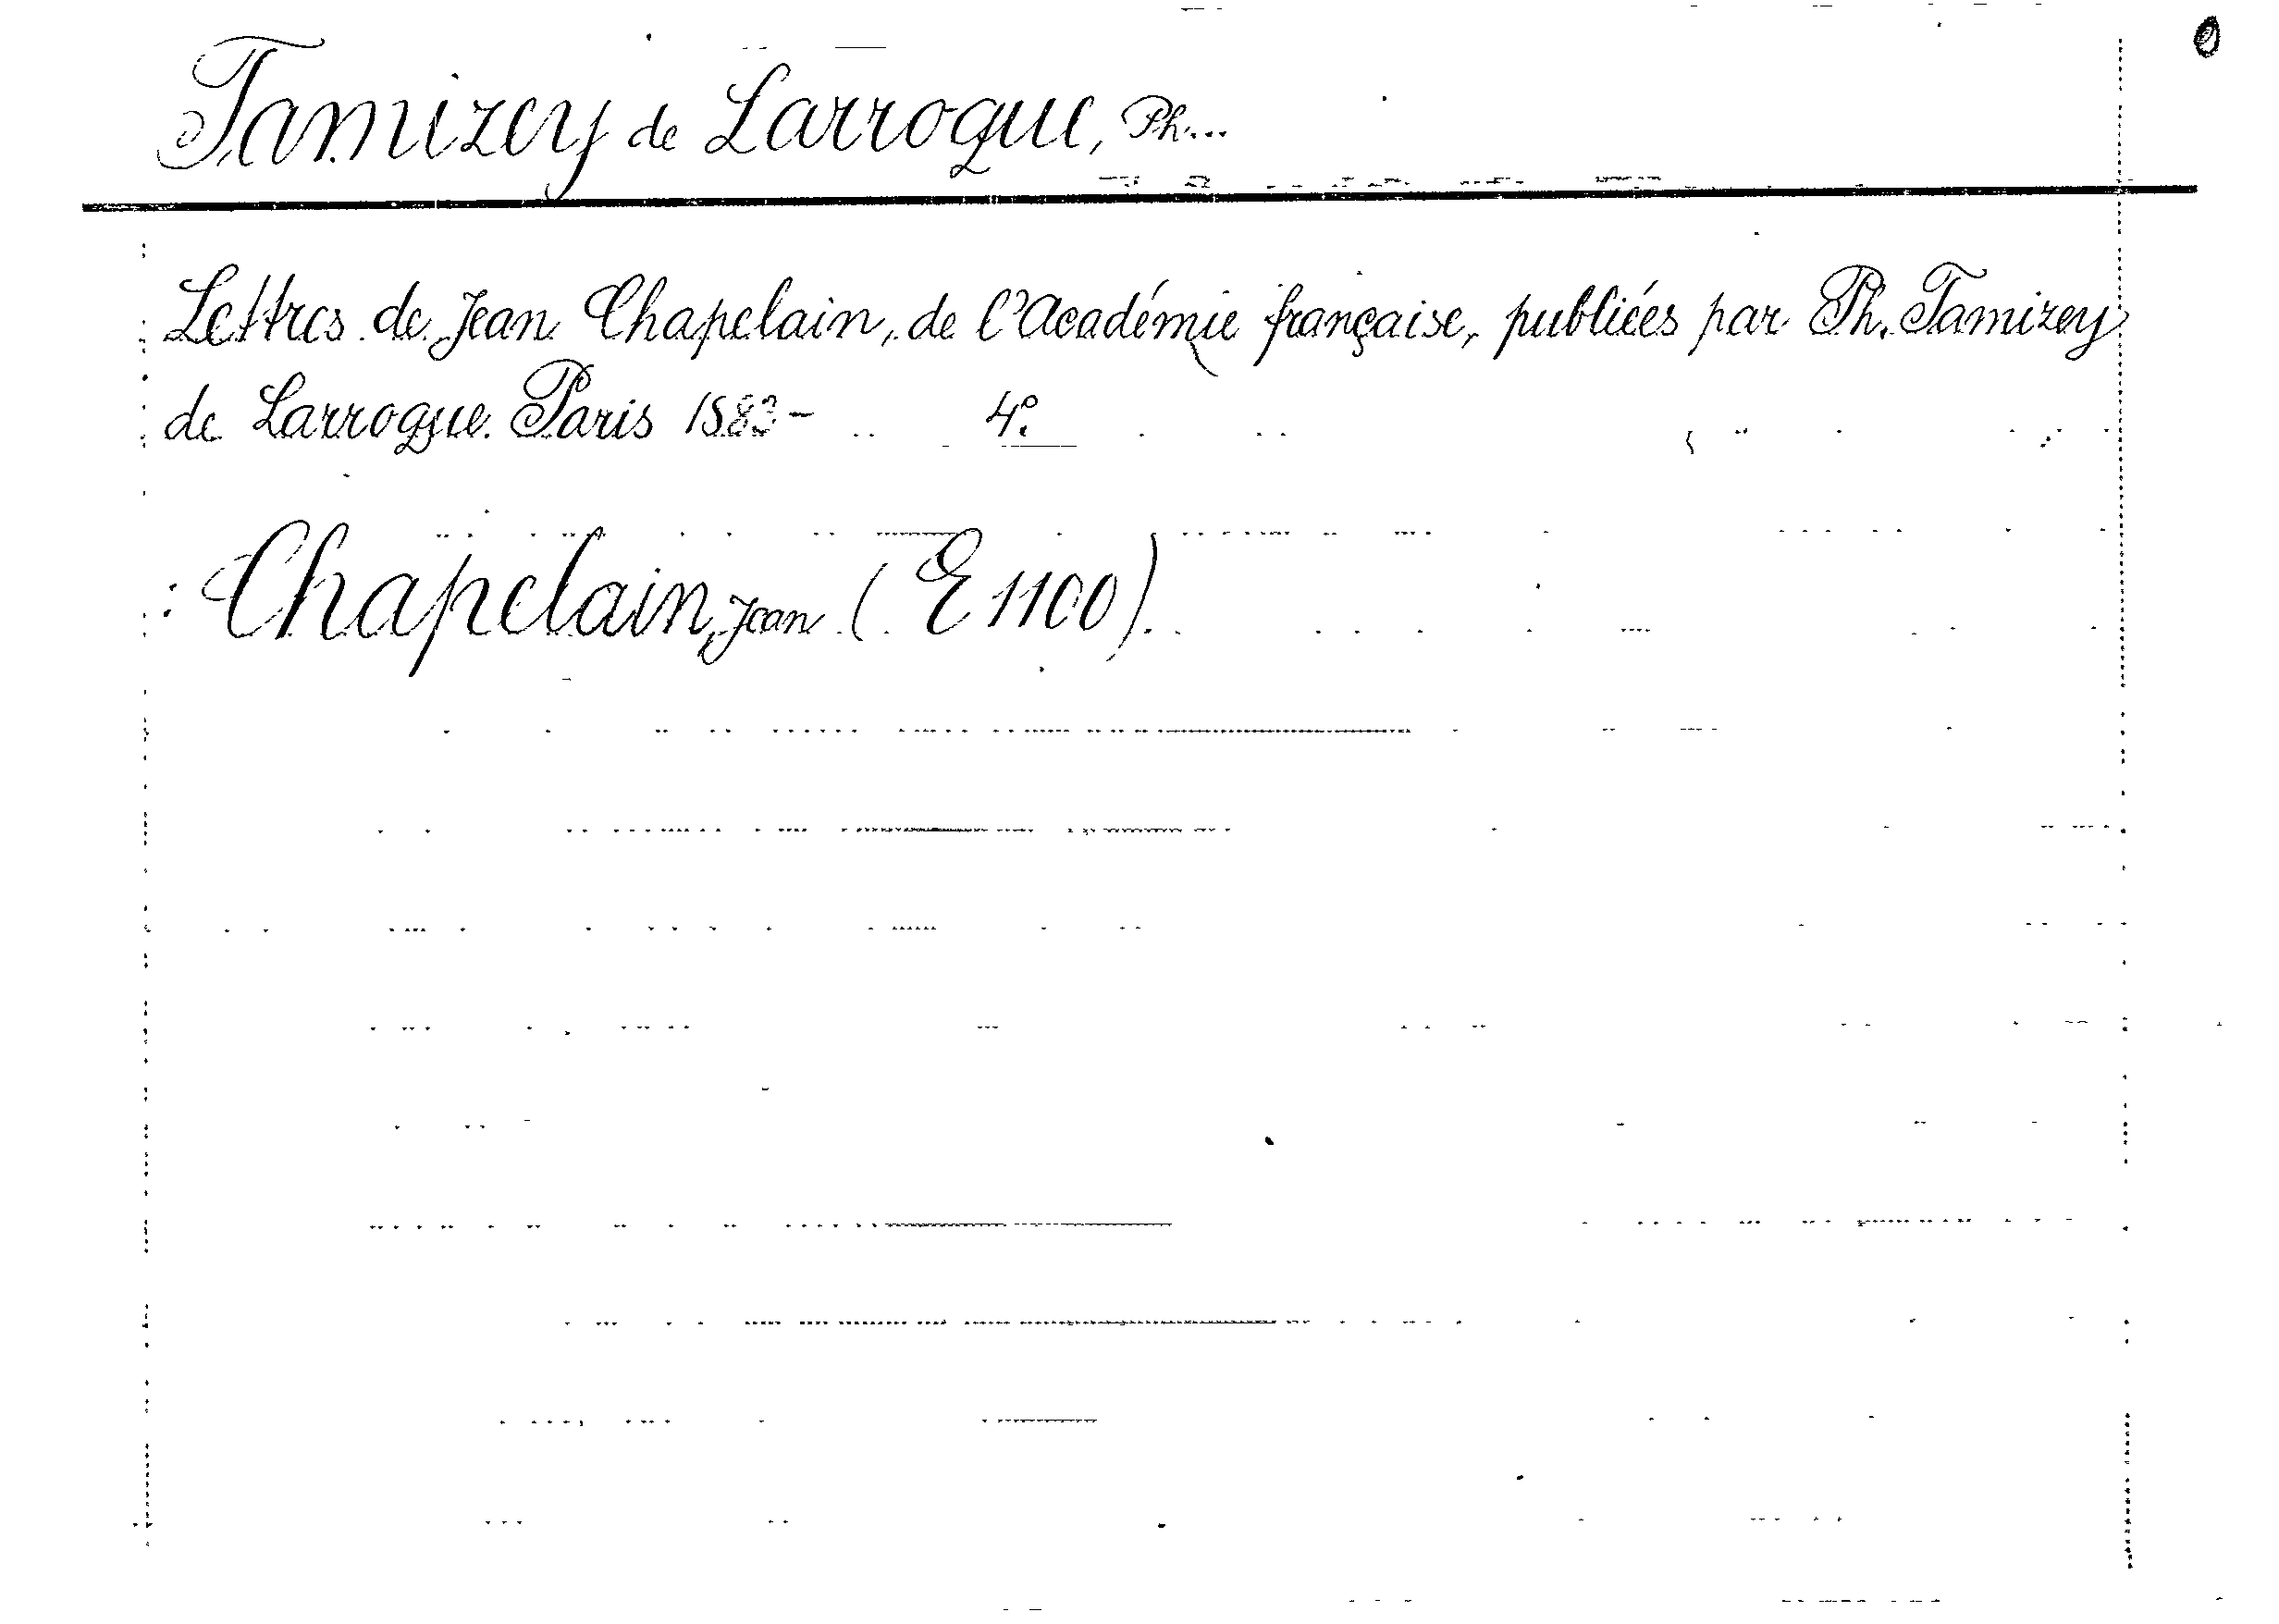 Tamizey de Larroque, Ph...
Lettres de Jean Chapelain, de l'Académie française, publiées par Ph. Tamizey
de Larroque. Paris 1883- 4º.
Chapelain, Jean (E 1100).